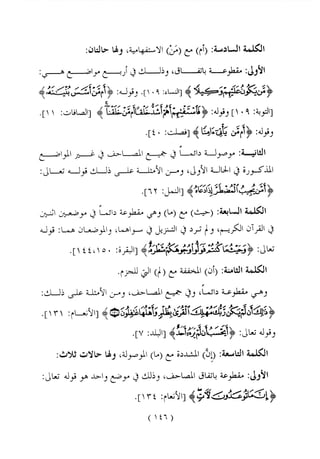 الكلمة السادسة: (أم) مع (مَنْ) الاستفهامية، ولها حالتان:
الأولى: مقطوعة باتفاق، وذلك في أربعة مواضع هي:
﴿أَم مَّن يَكُونُ عَلَيْهِمْ وَكِيلًا﴾ [النساء: ١٠٩]. وقوله: ﴿أَم مَّنْ أَسَّسَ بُنْيَانَهُ﴾
[التوبة: ١٠٩] وقوله: ﴿فَاسْتَفْتِهِمْ أَهُمْ أَشَدُّ خَلْقًا أَم مَّنْ خَلَقْنَا﴾ [الصافات: ١١].
وقوله: ﴿أَم مَّن يَأْتِي آمِنًا﴾ [فصلت: ٤٠].
الثانية: موصولة دائماً في جميع المصاحف في غير المواضع
المذكورة في الحالة الأولى، ومن الأمثلة على ذلك قوله تعالى:
﴿أَمَّن يُجِيبُ الْمُضْطَرَّ إِذَا دَعَاهُ﴾ [النمل: ٦٢].
الكلمة السابعة: (حيث) مع (ما) وهي مقطوعة دائماً في موضعين اثنين
في القرآن الكريم، ولم ترد في التنزيل في سواهما، والموضعان هما: قوله
تعالى: ﴿وَحَيْثُ مَا كُنتُمْ فَوَلُّوا وُجُوهَكُمْ شَطْرَهُ﴾ [البقرة: ١٤٤،١٥٠].
الكلمة الثامنة: (أن) المخففة مع (لم) التي للجزم.
وهي مقطوعة دائماً، وفي جميع المصاحف، ومن الأمثلة على ذلك:
﴿ذَٰلِكَ أَن لَّمْ يَكُن رَّبُّكَ مُهْلِكَ الْقُرَىٰ بِظُلْمٍ وَأَهْلُهَا غَافِلُونَ﴾ [الأنعام: ١٣١].
وقوله تعالى: ﴿أَيَحْسَبُ أَن لَّمْ يَرَهُ أَحَدٌ﴾ [البلد: ٧].
الكلمة التاسعة: (إنَّ) المشددة مع (ما) الموصولة، ولها حالات ثلاث:
الأولى: مقطوعة باتفاق المصاحف، وذلك في موضع واحد هو قوله تعالى:
﴿إِنَّ مَا تُوعَدُونَ لَآتٍ﴾ [الأنعام: ١٣٤].
(١٤٦)